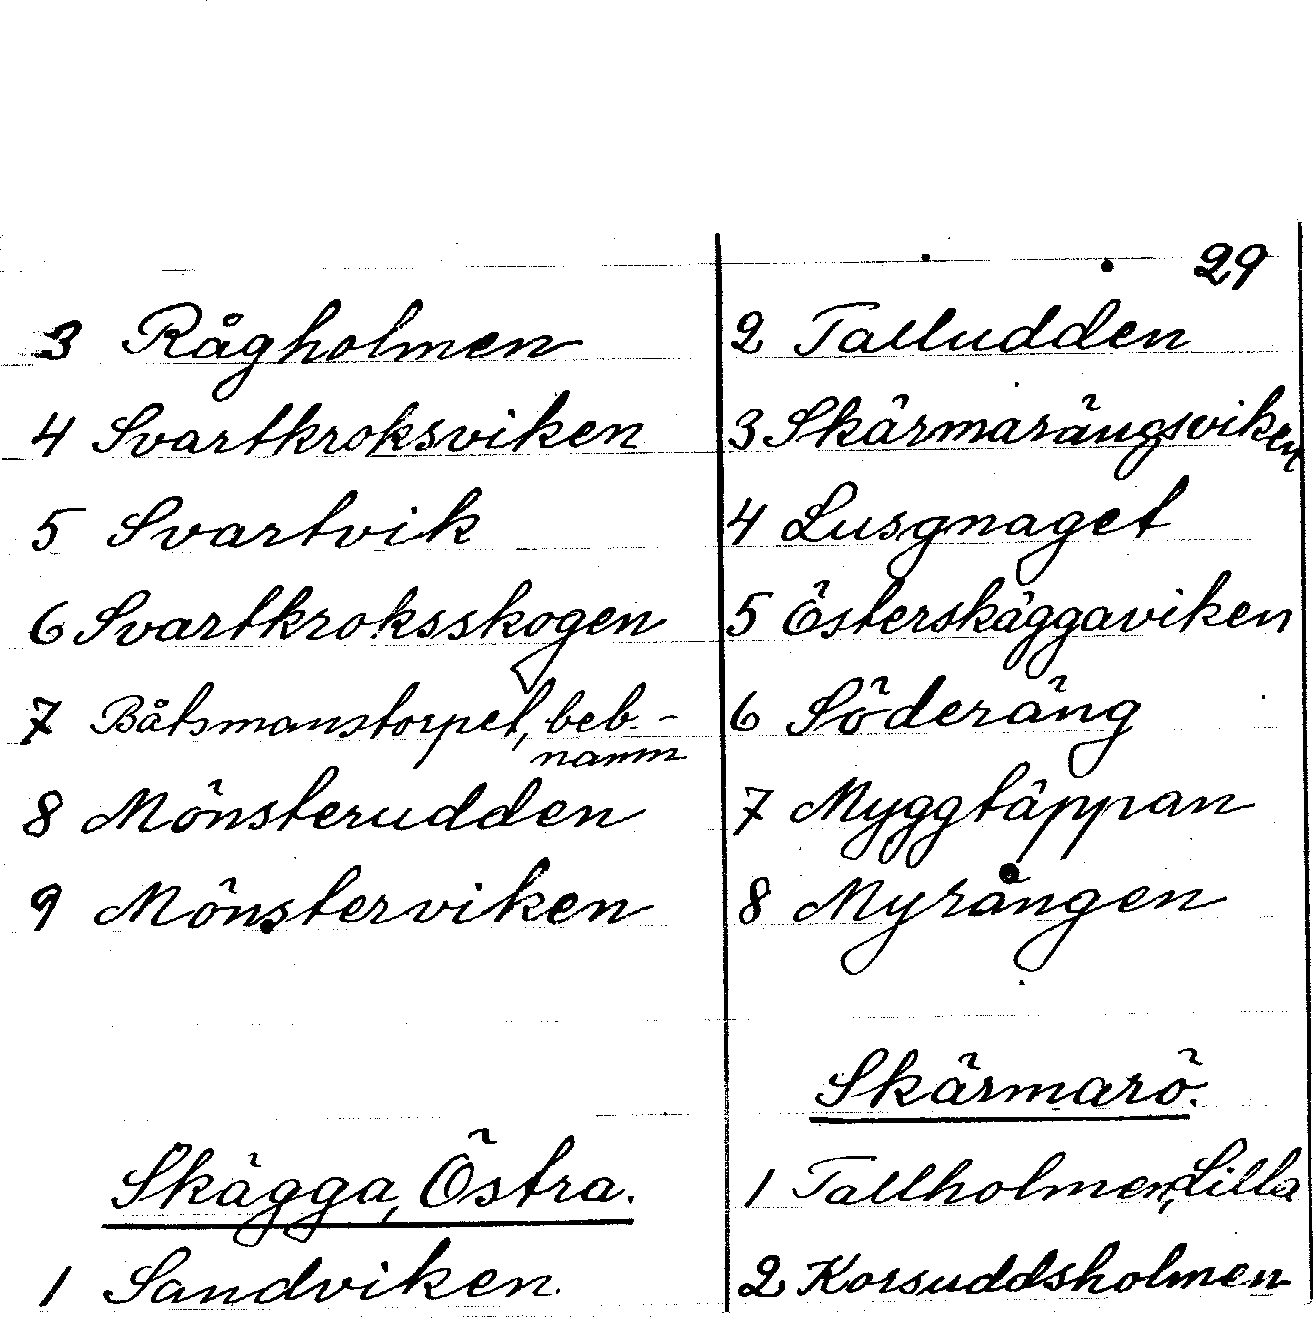 29
3 Rågholmen
4 Svartkroksviken
5 Svartvik
6 Svartkroksskogen
7 Båtsmanstorpet, beb.-
namn
8 Mönsterudden
9 Mönsterviken
Skägga, Östra.
1 Sandviken.
2 Talludden
3 Skärmarängsviken
4 Lusgnaget
5 Österskäggaviken
6 Söderäng
7 Myggtäppan
8 Myrängen
Skärmarö.
1 Tallholmen, Lilla
2 Korsuddsholmen